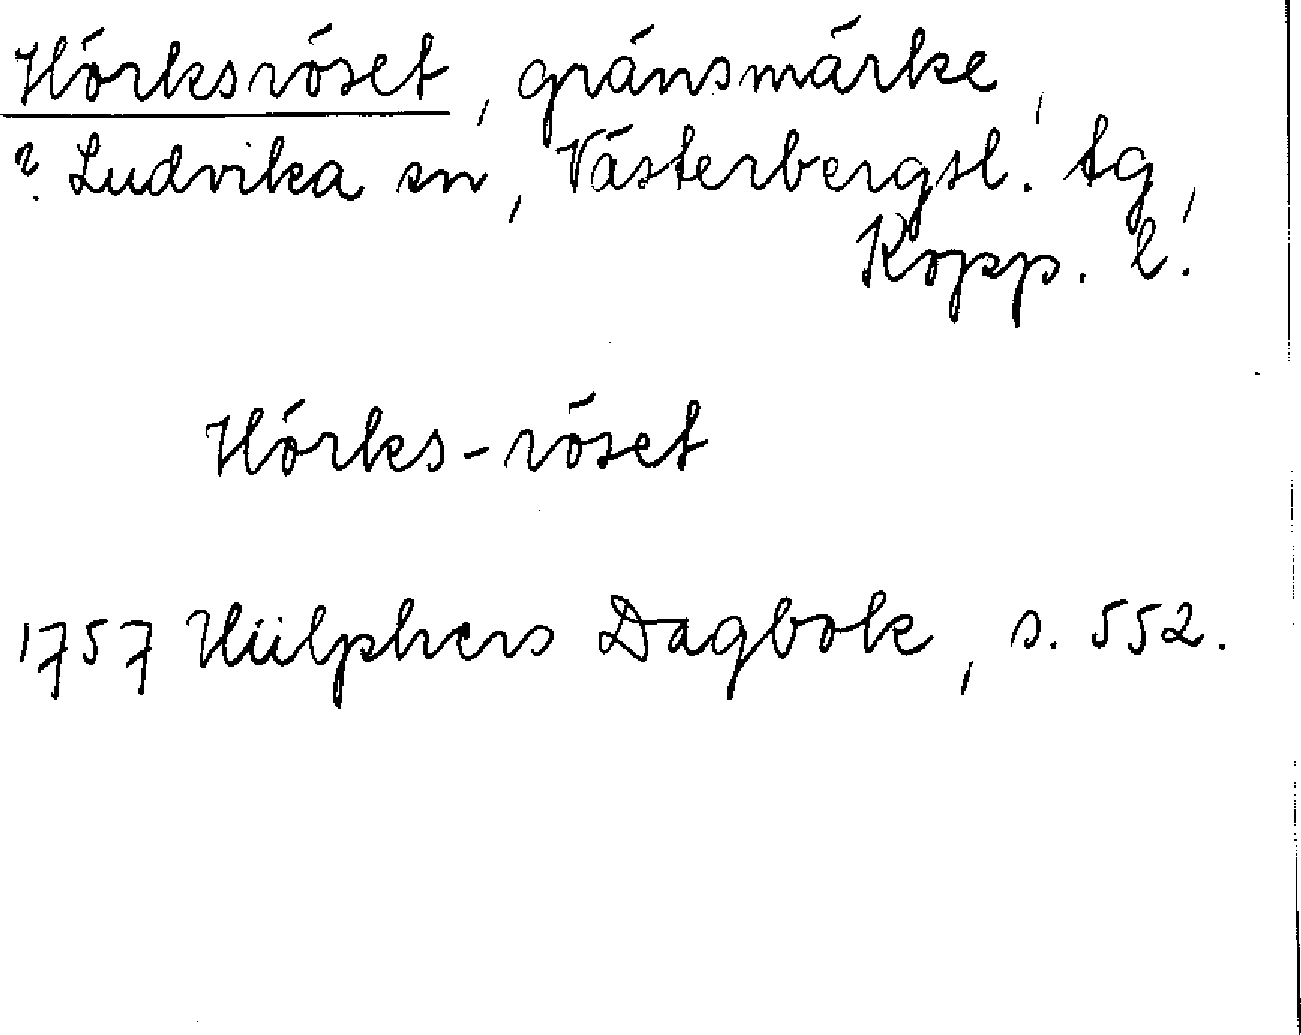 Hörksröset, gränsmärke,
? Ludvika sn, Västerbergsl. tg,
Kopp. l.
Hörks-röset
1757 Hülphers Dagbok, s. 552.